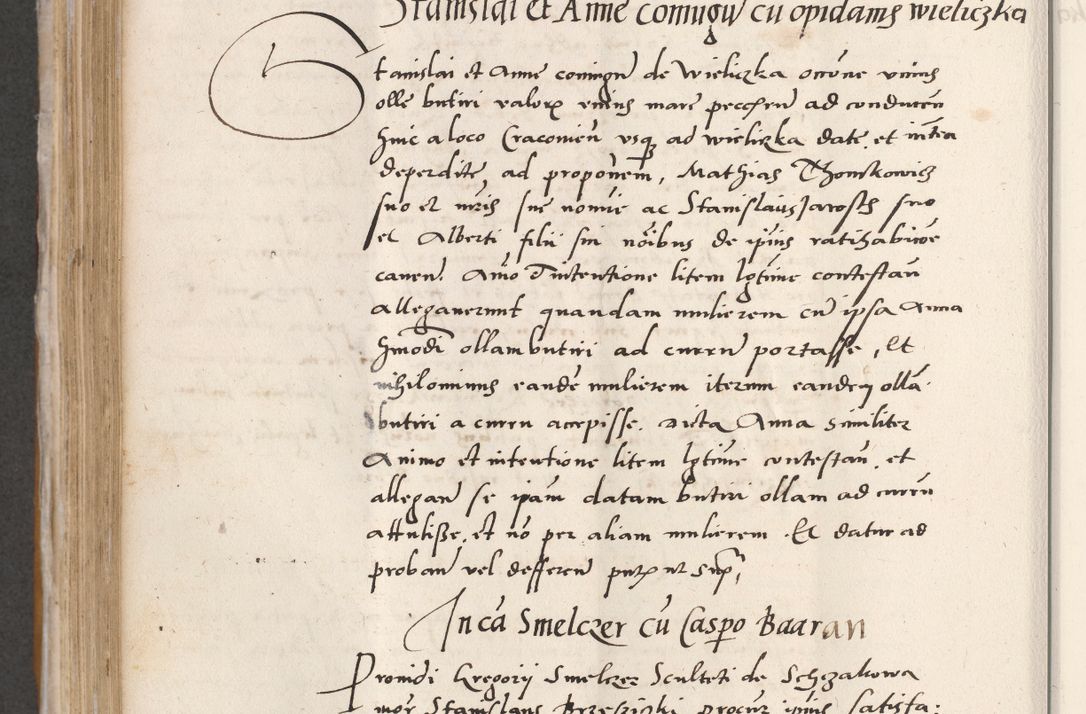 Stanislai et Anne coniugu cu opidanis wieliczka
Stanislai et Anne coniugu de Wieliczka occone unius
olle butiri valoris unius marc ad conducen
huic a loco Cracovien usq ad wieliczka date et interea
deperdite, ad proponem, Mathias Thomkowicz
suo et uxoris sue nomine ac Stanislaus Jarosch suo
et Alberti filii sui noibus de ipius ratihabitione
caven Animo et intentione litem lgtime contestan
allegaverunt quandam mulierem cu ipsa Anna
hmodi ollam butiri ad currum portasse, Et
nihilominus eande mulierem iterum eandem olla
butiri a curru accepisse. Dicta Anna similiter
Animo et intentione litem lgtime contestan, et
allegan se ipam datam butiri ollam ad curru
attulisse, et no per aliam mulierem. Et datur ad
proban vel defferen ut
In ca Smelczer cu Caspo Baaran
Providi Gregorii Smelczer Sculteti de Schczakowa
Stanislaus Brzeziczki procur ipius satisfa: